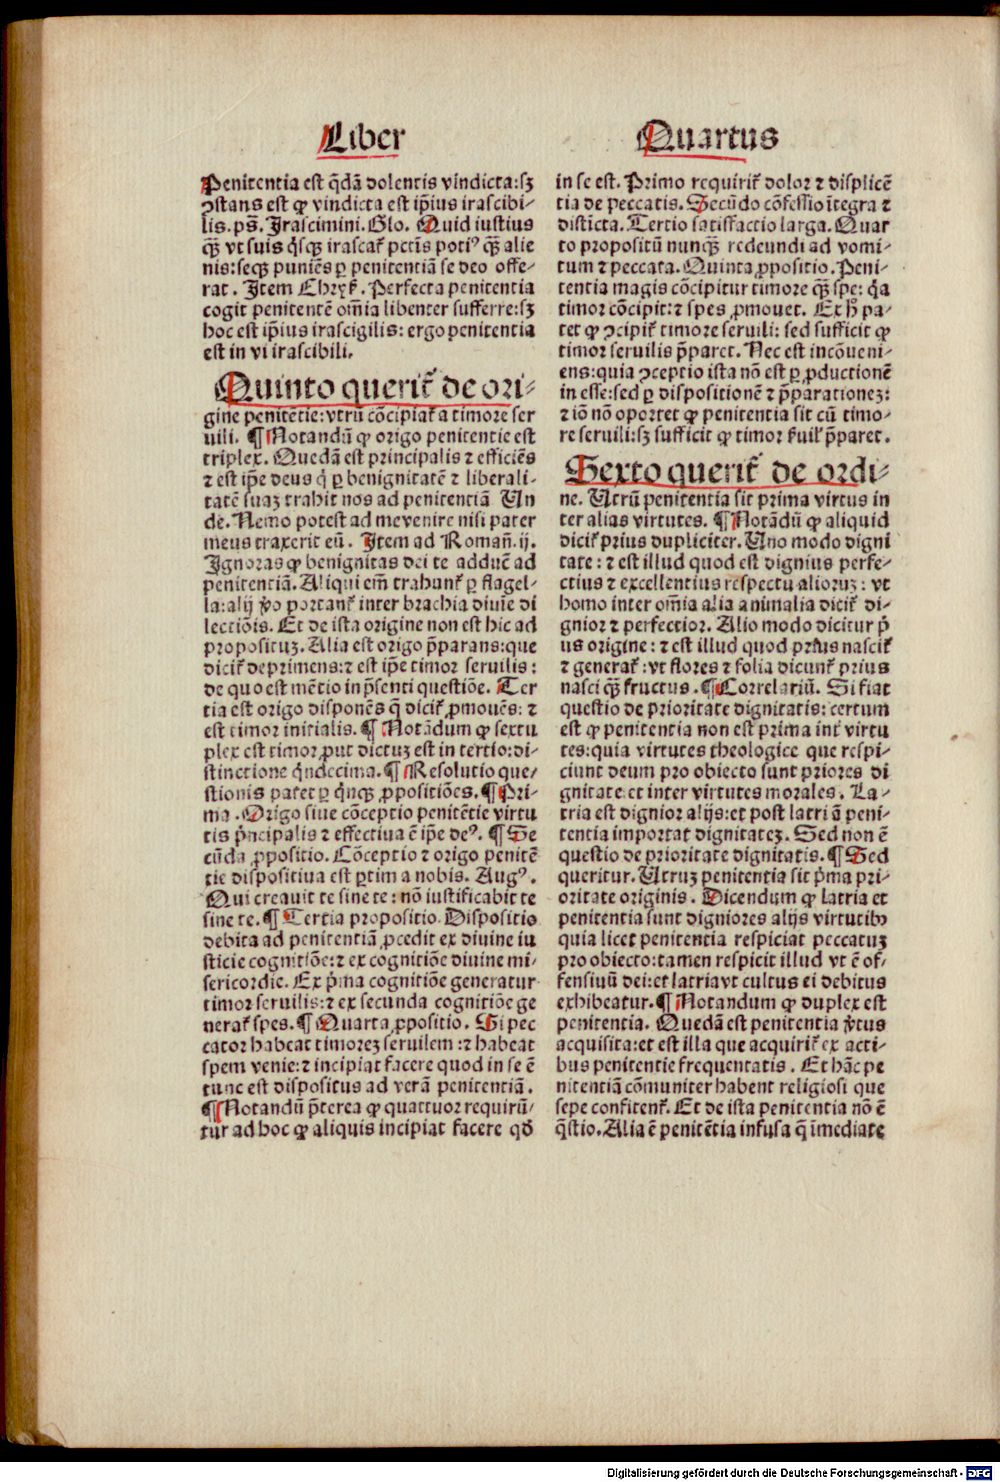 Liber
Quartus
Penitentia est q̄dā dolentis vindicta:sꝫ
ꝯstans est ꝙ vindicta est ip̄ius irascibi-
lis. ps̄. Irascimini. Glo. Quid iustius
qꝫ̄ vt suis q̇sqꝫ irascat᷑ pctīs potiꝰ qꝫ̄ alie
nis:seqꝫ puniēs ꝑ penitentiā se deo offe-
rat. Item Chryẜ. Perfecta penitentia
cogit penitentē om̄ia libenter sufferre:sꝫ
hoc est ip̄ius irascigilis: ergo penitentia
est in vi irascibili.
Quinto querit᷑ de ori-
gine penitētie: vtrū cōcipiat᷑ a timore ser
uili. ¶ Notandū ꝙ origo penitentie est
triplex. Quedā est principalis ⁊ efficiēs
⁊ est ip̄e deus q̇ ꝑ benignitatē ⁊ liberali-
tatē suaꝫ trahit nos ad penitentiā Un
de. Nemo potest ad me venire nisi pater
meus traxerit eū. Item ad Romañ. ij.
Ignoras ꝙ benignitas dei te adducē ad
penitentiā. Aliqui em̄ trahunt᷑ ꝑ flagel-
la:alij ꝟo portant᷑ inter brachia diuīe di
lectiōis. Et de ista origine non est hic ad
propositūꝫ. Alia est origo p̄parans:que
dicit᷑ deprimens:⁊ est ip̄e timor seruilis:
de quo est mētio in p̄senti questiōe. Ter
tia est origo disponēs q̄ dicit᷑ ꝓmouēs: ⁊
est timor initialis. ¶ Notādum ꝙ sextu
plex est timor ꝓut dictuꝫ est in tertio:di-
stinctione q̇ndecima. ¶ Resolutio que-
stionis patet ꝑ q̇nqꝫ ꝓpositiōes. ¶ Pri-
ma. Origo siue cōceptio penitētie virtu
tis ṗncipalis ⁊ effectiua ē ip̄e deꝰ. ¶ Se
cūda ꝓpositio. Cōceptio ⁊ origo penitē
tie dispositiua est ꝑtim a nobis. Augꝰ.
Qui creauit te sine te: nō iustificabit te
sine te. ¶ Tertia propositio. Dispositio
debita ad penitentiā ꝓcedit ex diuine iu
sticie cognitiōe:⁊ ex cognitiōe diuine mi-
sericordie. Ex ṗma cognitiōe generatur
timor seruilis:⁊ ex secunda cognitiōe ge
nerat᷑ spes. ¶ Quarta ꝓpositio. Si pec
cator habeat timoreꝫ seruilem:⁊ habeat
spem venie:⁊ incipiat facere quod in se ē
tunc est dispositus ad verā penitentiā.
¶ Notandū p̄terea ꝙ quattuor requirū-
tur ad hoc ꝙ aliquis incipiat facere qd̄
in se est. Primo requirit᷑ dolor ⁊ displicē
tia de peccatis. Secūdo cōfessio ītegra ⁊
distīcta. Tertio satisfactio larga. Quar
to propositū nunqꝫ̄ redeundi ad vomi-
tum ⁊ peccata. Quinta ꝓpositio. Peni-
tentia magis cōcipitur timore qꝫ̄ spe: q̇a
timor cōcipit:⁊ spes ꝓmouet. Ex hꝰ pa-
tet ꝙ ꝯcipit᷑ timore seruili: sed sufficit ꝙ
timor seruilis p̄paret. Nec est incōueni-
ens:quia ꝯceptio ista nō est ꝑ ꝓductionē
in esse:sed ꝑ dispositionē ⁊ p̄parationeꝫ:
⁊ iō nō oportet ꝙ penitentia sit cū timo-
re seruili:sꝫ sufficit ꝙ timor ẜuil᷑ p̄paret.
Sexto querit᷑ de ordi-
ne. Utrū penitentia sit prima virtus in
ter alias virtutes. ¶ Notādū ꝙ aliquid
dicit᷑ prius dupliciter. Uno modo digni
tate: ⁊ est illud quod est dignius perfe-
ctius ⁊ excellentius respectu alioruꝫ: vt
homo inter om̄ia alia animalia dicit᷑ di-
gnior ⁊ perfectior. Alio modo dicitur ṗ
us origine: ⁊ est illud quod pri̇us nascit᷑
⁊ generat᷑: vt flores ⁊ folia dicunt᷑ prius
nasci qꝫ̄ fructus. ¶ Correlariū. Si fiat
questio de prioritate dignitatis: certum
est ꝙ penitentia non est prima int᷑ virtu
tes:quia virtutes theologice que respi-
ciunt deum pro obiecto sunt priores di
gnitate:et inter virtutes morales. La-
tria est dignior alijs:et post latriā peni-
tentia importat dignitateꝫ. Sed non ē
questio de prioritate dignitatis. ¶ Sed
queritur. Utruꝫ penitentia sit ṗma pri-
oritate originis. Dicendum ꝙ latria et
penitentia sunt digniores alijs virtutibꝫ
quia licet penitentia respiciat peccatuꝫ
pro obiecto:tamen respicit illud vt ē of-
fensiuū dei:et latria vt cultus ei debitus
exhibeatur. ¶ Notandum ꝙ duplex est
penitentia. Quedā est penitentia ꝟtus
acquisita:et est illa que acquirit᷑ ex acti-
bus penitentie frequentatis. Et hāc pe
nitentiā cōmuniter habent religiosi que
sepe confitent᷑. Et de ista penitentia nō ē
q̄stio. Alia ē penitētia infusa q̄ īmediate
Digitalisierung gefördert durch die Deutsche Forschungsgemeinschaft - DFG